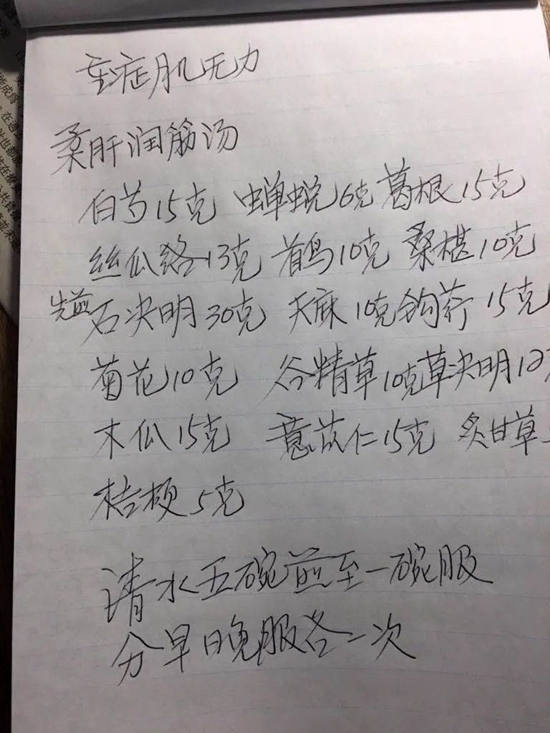 重症肌无力
柔肝润筋汤
白芍15克 蝉蜕6克 葛根15克
丝瓜络13克 首乌10克 桑椹10克
先煎石决明30克 天麻10克 钩藤15克
菊花10克 谷精草10克 草决明12
木瓜15克 薏苡仁15克 炙甘草
桔梗5克
清水五碗煎至一碗服
分早晚服各一次